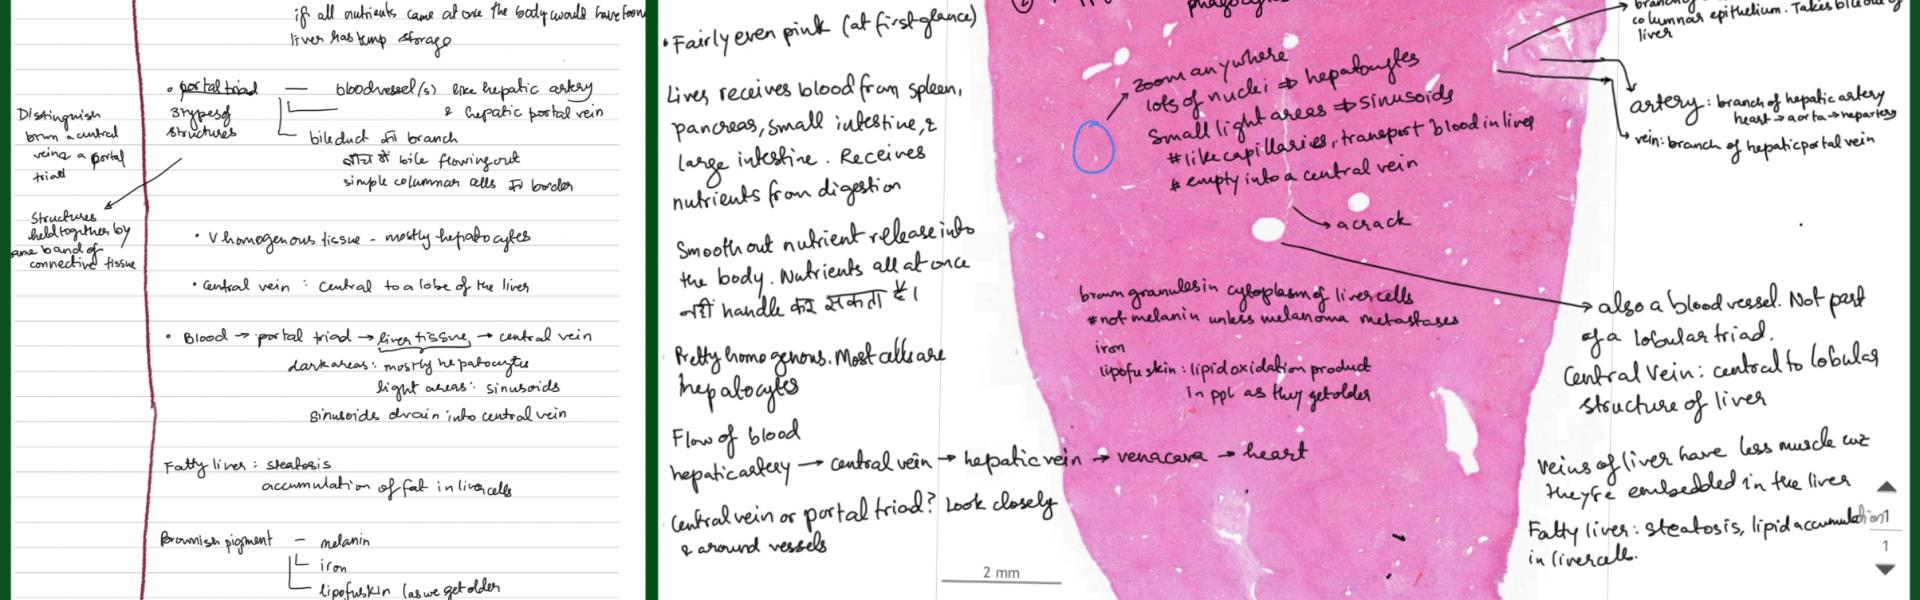 if all nutrients came at one the body would have
liver has temp storage
• portal triad — blood vessel(s) like hepatic artery
3 types of & hepatic portal vein
structures
bile duct की branch
बीच में bile flowing out
simple columnar cells का border
Distinguish
b/w a central
vein & a portal
triad
Structures
held together by
same band of
connective tissue
• V homogenous tissue - mostly hepatocytes
• Central vein : central to a lobe of the liver
• Blood → portal triad → liver tissue → central vein
dark areas: mostly hepatocytes
light areas: sinusoids
Sinusoids drain into central vein
Fatty liver : steatosis
accumulation of fat in liver cells
Brownish pigment — melanin
iron
lipofuskin (as we get older
• Fairly even pink (at first glance)
Liver receives blood from spleen,
pancreas, small intestine, &
large intestine. Receives
nutrients from digestion
Smooth out nutrient release into
the body. Nutrients all at once
नहीं handle कर सकता है।
Pretty homogenous. Most cells are
hepatocytes
Flow of blood
hepatic artery → central vein → hepatic vein → vena cava → heart
Central vein or portal triad? Look closely
& around vessels
phagocytes
zoom anywhere
lots of nuclei ⇒ hepatocytes
Small light areas ⇒ sinusoids
# like capillaries, transport blood in liver
# empty into a central vein
→ a crack
brown granules in cytoplasm of liver cells
# not melanin unless melanoma metastases
iron
lipofuskin : lipid oxidation product
in ppl as they get older
2 mm
columnar epithelium. Takes bile out of
liver
artery : branch of hepatic artery
heart → aorta → hep artery
vein: branch of hepatic portal vein
→ also a blood vessel. Not part
of a lobular triad.
Central Vein: central to lobular
structure of liver
Veins of liver have less muscle cuz
they're embedded in the liver
Fatty liver: steatosis, lipid accumulation
in liver cell.
1
1